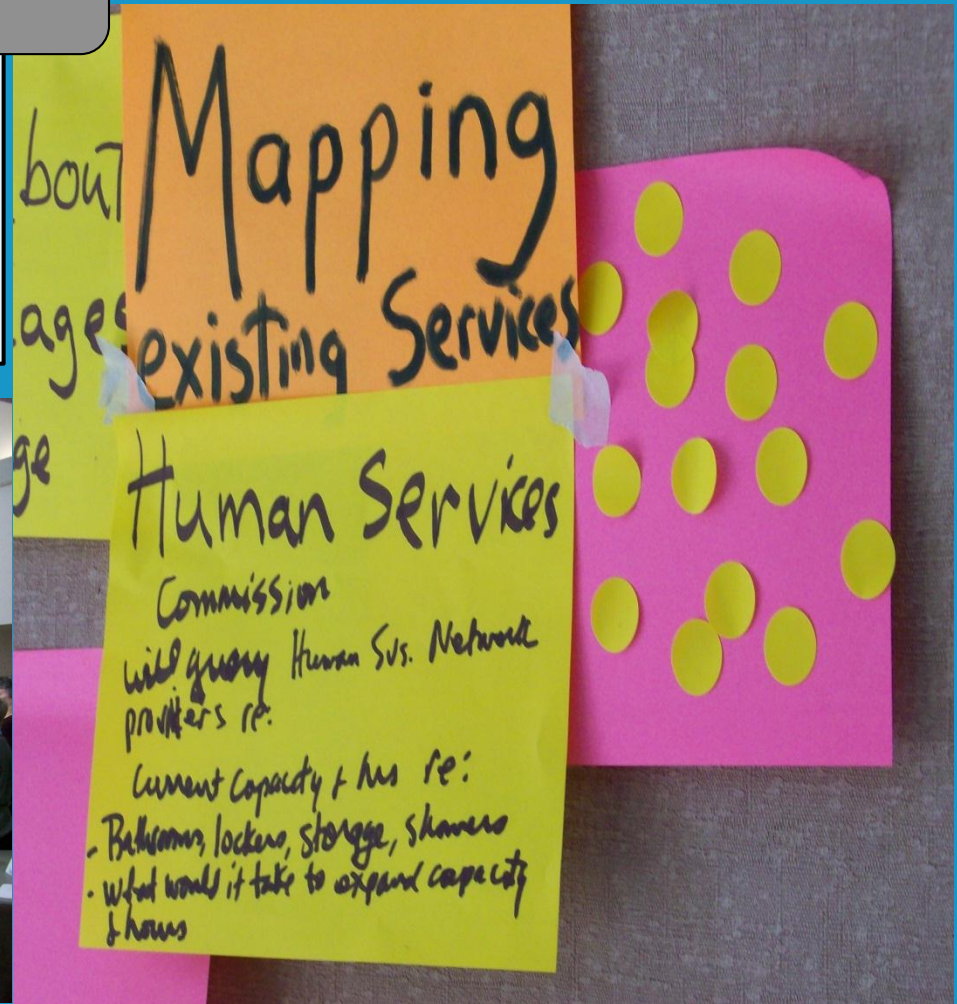 bout
ages
ge
Mapping
existing Services
Human Services
Commission
will query Human Svs. Network
providers re:
Current Capacity & hrs re:
- Bathrooms, lockers, storage, showers
- What would it take to expand capacity
& hours